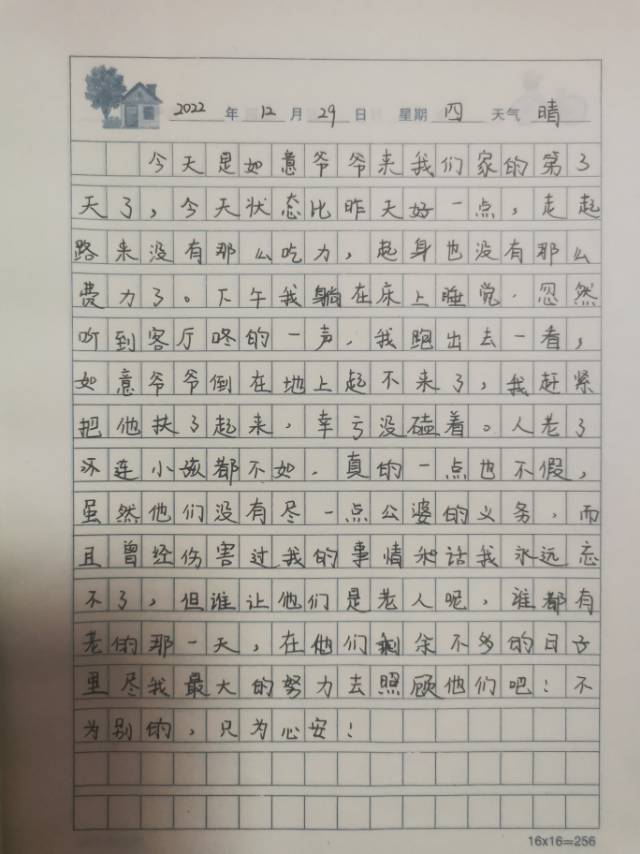 2022 年 12 月 29 日 星期 四 天气 晴
今天是如意爷爷来我们家的第3
天了，今天状态比昨天好一点，走起
路来没有那么吃力，起身也没有那么
费力了。下午我躺在床上睡觉.忽然
听到客厅咚的一声，我跑出去一看，
如意爷爷倒在地上起不来了，我赶紧
把他扶了起来，幸亏没磕着。人老了
还连小孩都不如.真的一点也不假，
虽然他们没有尽一点公婆的义务，而
且曾经伤害过我的事情和话我永远忘
不了，但谁让他们是老人呢，谁都有
老的那一天，在他们剩余不多的日子
里尽我最大的努力去照顾他们吧！不
为别的，只为心安！
16x16=256